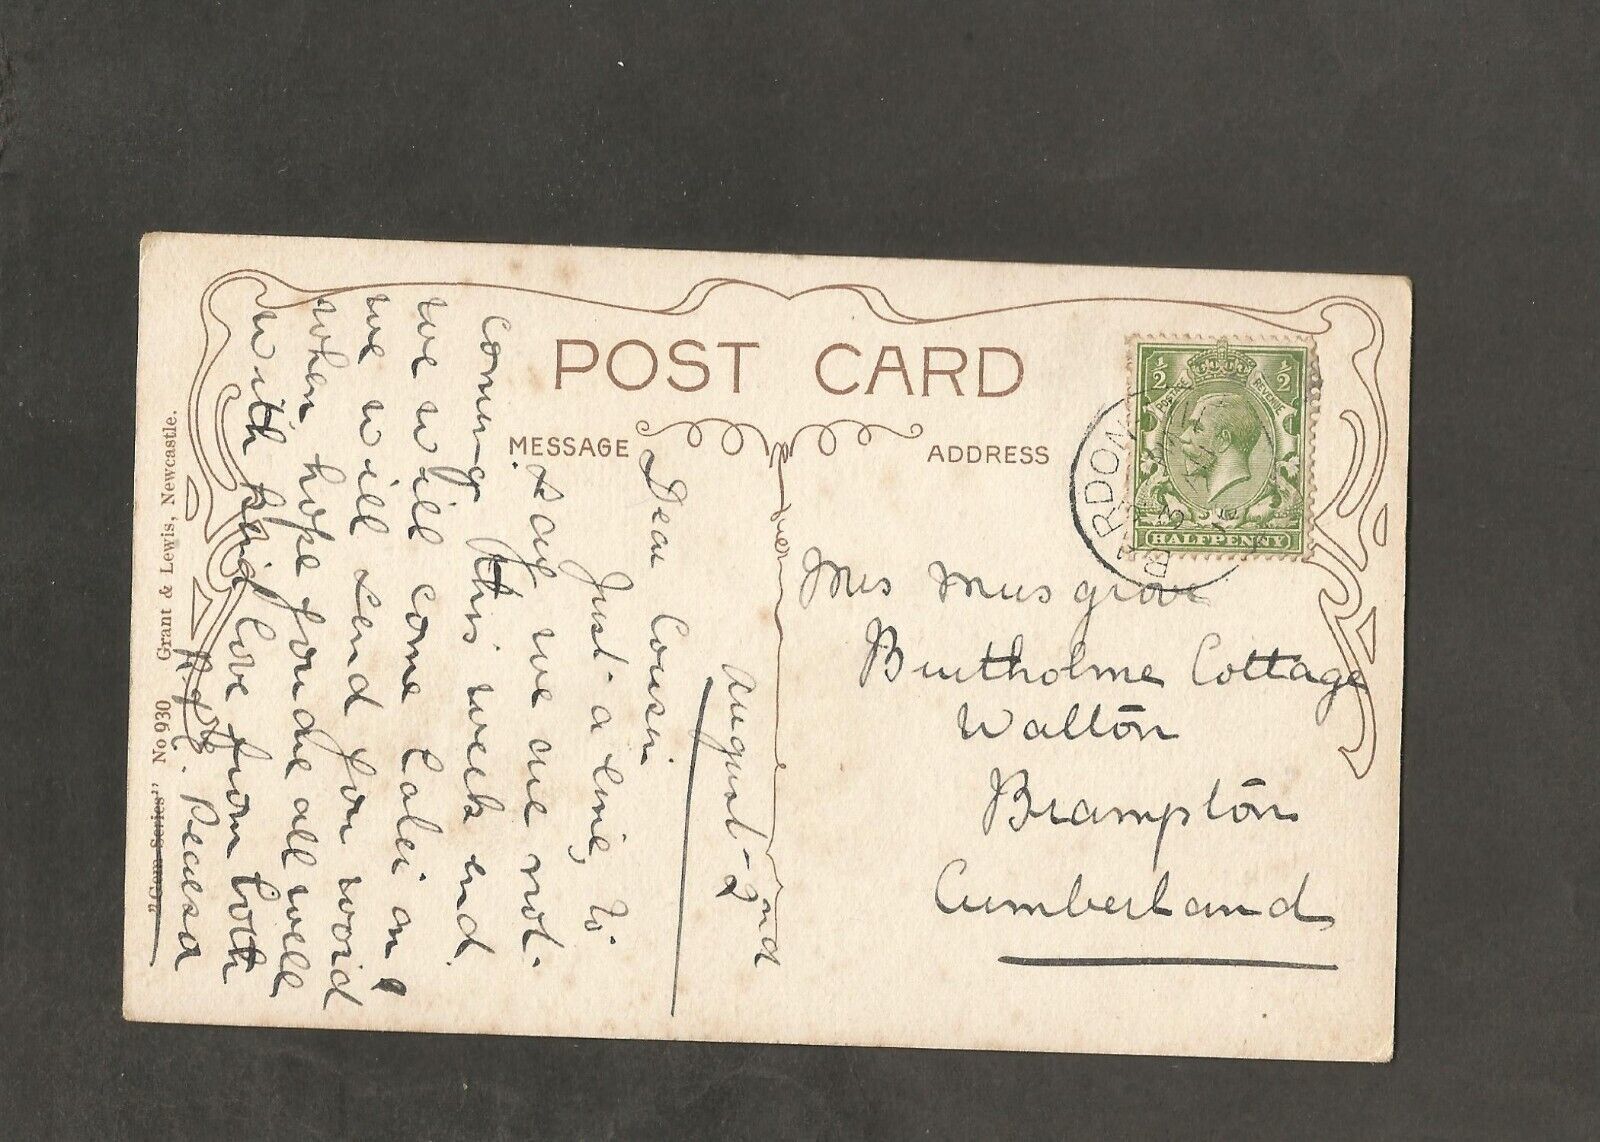 POST CARD
MESSAGE
ADDRESS
½ ½
POSTAGE REVENUE
HALFPENNY
BARDON M
August 2nd
Dear Cousin
Just a line, to
say we are not
coming this week end
we will come later on
we will send you word
when hope you are all well
with kind love from both
"Gem Series" No 930 Grant & Lewis, Newcastle.
Mrs Musgrave
Burtholme Cottage
Walton
Brampton
Cumberland